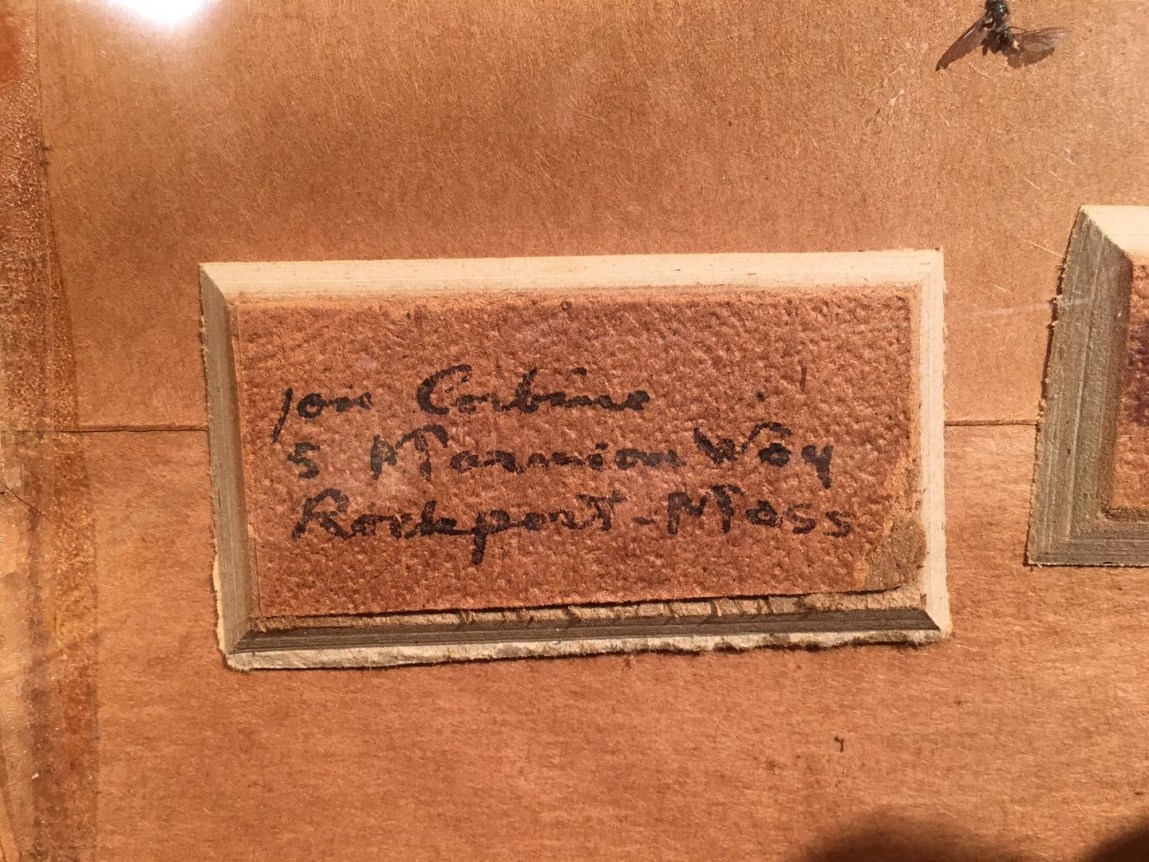 Jon Corbino
5 Marmion Way
Rockport - Mass